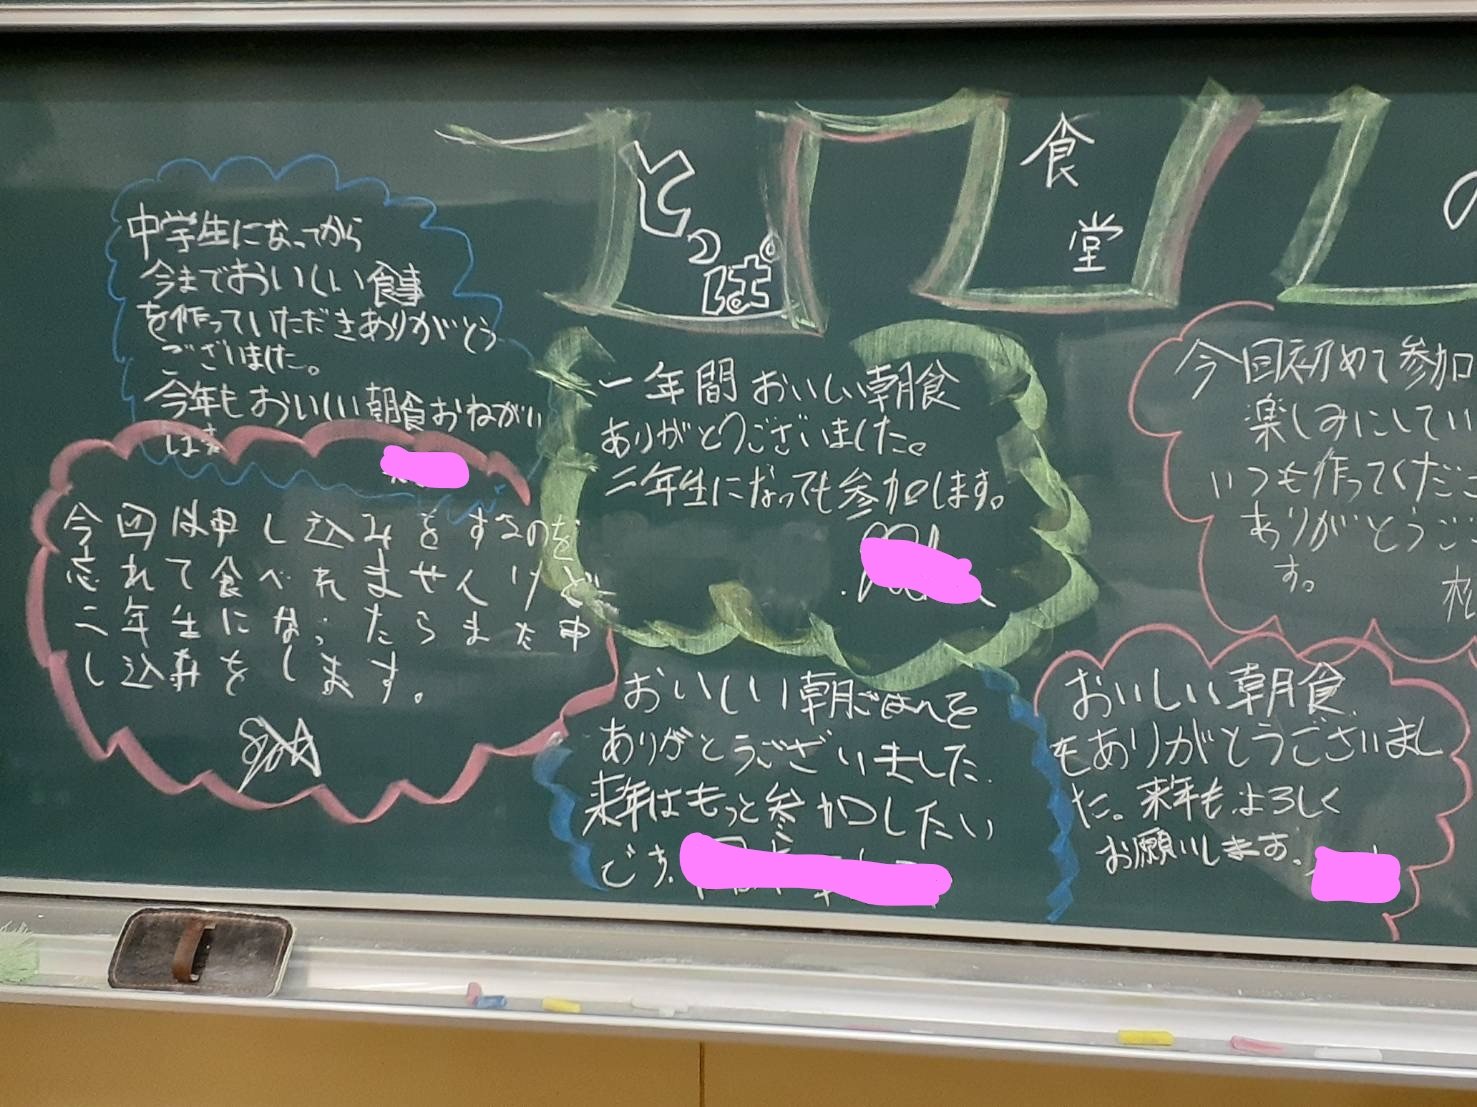 とっぱ
食堂
の
中学生になってから
今までおいしい食事
を作っていただきありがとう
ございました。
今年もおいしい朝食おねがい
します
今回は申し込みをするのを
忘れて食べれませんけど
二年生になったらまた申
し込みをします。
一年間おいしい朝食
ありがとうございました。
二年生になっても参加します。
おいしい朝ごはんを
ありがとうございました
来年はもっと参加したい
です。
今回初めて参加
楽しみにしてい
いつも作ってくださ
ありがとうご
す。
おいしい朝食
をありがとうございまし
た。来年もよろしく
お願いします。